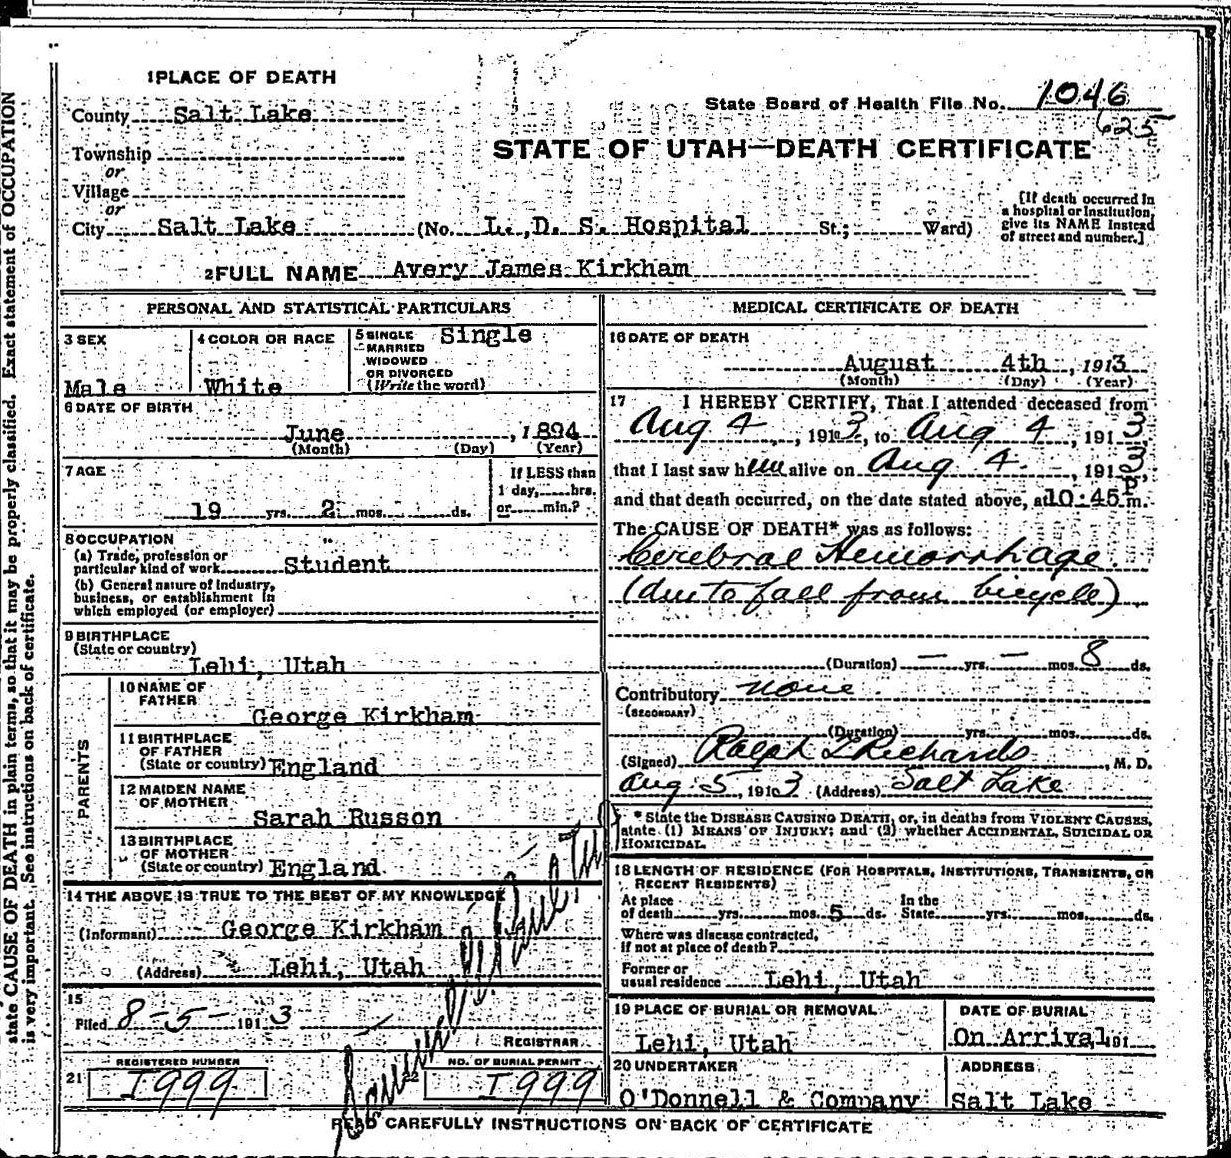 state CAUSE OF DEATH in plain terms, so that it may be properly classified. Exact statement of OCCUPATION
is very important. See instructions on back of certificate.
1 PLACE OF DEATH
County Salt Lake
Township
or
Village
or
City Salt Lake (No. L. D. S. Hospital St.; Ward)
State Board of Health File No. 1046
625
STATE OF UTAH—DEATH CERTIFICATE
[If death occurred in
a hospital or institution,
give its NAME instead
of street and number.]
2 FULL NAME Avery James Kirkham
PERSONAL AND STATISTICAL PARTICULARS
3 SEX
Male
4 COLOR OR RACE
White
5 SINGLE
MARRIED
WIDOWED
OR DIVORCED
(Write the word)
Single
6 DATE OF BIRTH
June , 1894
(Month) (Day) (Year)
7 AGE
19 yrs. 2 mos. ds.
If LESS than
1 day, hrs.
or min.?
8 OCCUPATION
(a) Trade, profession or
particular kind of work Student
(b) General nature of industry,
business, or establishment in
which employed (or employer)
9 BIRTHPLACE
(State or country)
Lehi, Utah
PARENTS
10 NAME OF
FATHER
George Kirkham
11 BIRTHPLACE
OF FATHER
(State or country) England
12 MAIDEN NAME
OF MOTHER
Sarah Russon
13 BIRTHPLACE
OF MOTHER
(State or country) England
14 THE ABOVE IS TRUE TO THE BEST OF MY KNOWLEDGE
(Informant) George Kirkham
(Address) Lehi, Utah
15
Filed 8-5- 191 3
REGISTRAR
REGISTERED NUMBER
21 1999
NO. OF BURIAL PERMIT
22 1999
MEDICAL CERTIFICATE OF DEATH
16 DATE OF DEATH
August 4th , 1913
(Month) (Day) (Year)
17 I HEREBY CERTIFY, That I attended deceased from
Aug 4 , 191 3, to Aug 4 , 191 3
that I last saw him alive on Aug 4 , 191 3,
and that death occurred, on the date stated above, at 10:45 m.
The CAUSE OF DEATH* was as follows:
Cerebral Hemorrhage
(due to fall from bicycle)
(Duration) — yrs. — mos. 8 ds.
Contributory none
(SECONDARY)
(Duration) yrs. mos. ds.
(Signed) Ralph T. Richards , M. D.
Aug. 5, 191 3 (Address) Salt Lake
* State the DISEASE CAUSING DEATH, or, in deaths from VIOLENT CAUSES,
state (1) MEANS OF INJURY; and (2) whether ACCIDENTAL, SUICIDAL OR
HOMICIDAL.
18 LENGTH OF RESIDENCE (FOR HOSPITALS, INSTITUTIONS, TRANSIENTS, OR
RECENT RESIDENTS)
At place
of death yrs. mos. 5 ds.
In the
State yrs. mos. ds.
Where was disease contracted,
if not at place of death?
Former or
usual residence Lehi, Utah
19 PLACE OF BURIAL OR REMOVAL
Lehi, Utah
DATE OF BURIAL
On Arrival, 191
20 UNDERTAKER
O'Donnell & Company
ADDRESS
Salt Lake
READ CAREFULLY INSTRUCTIONS ON BACK OF CERTIFICATE